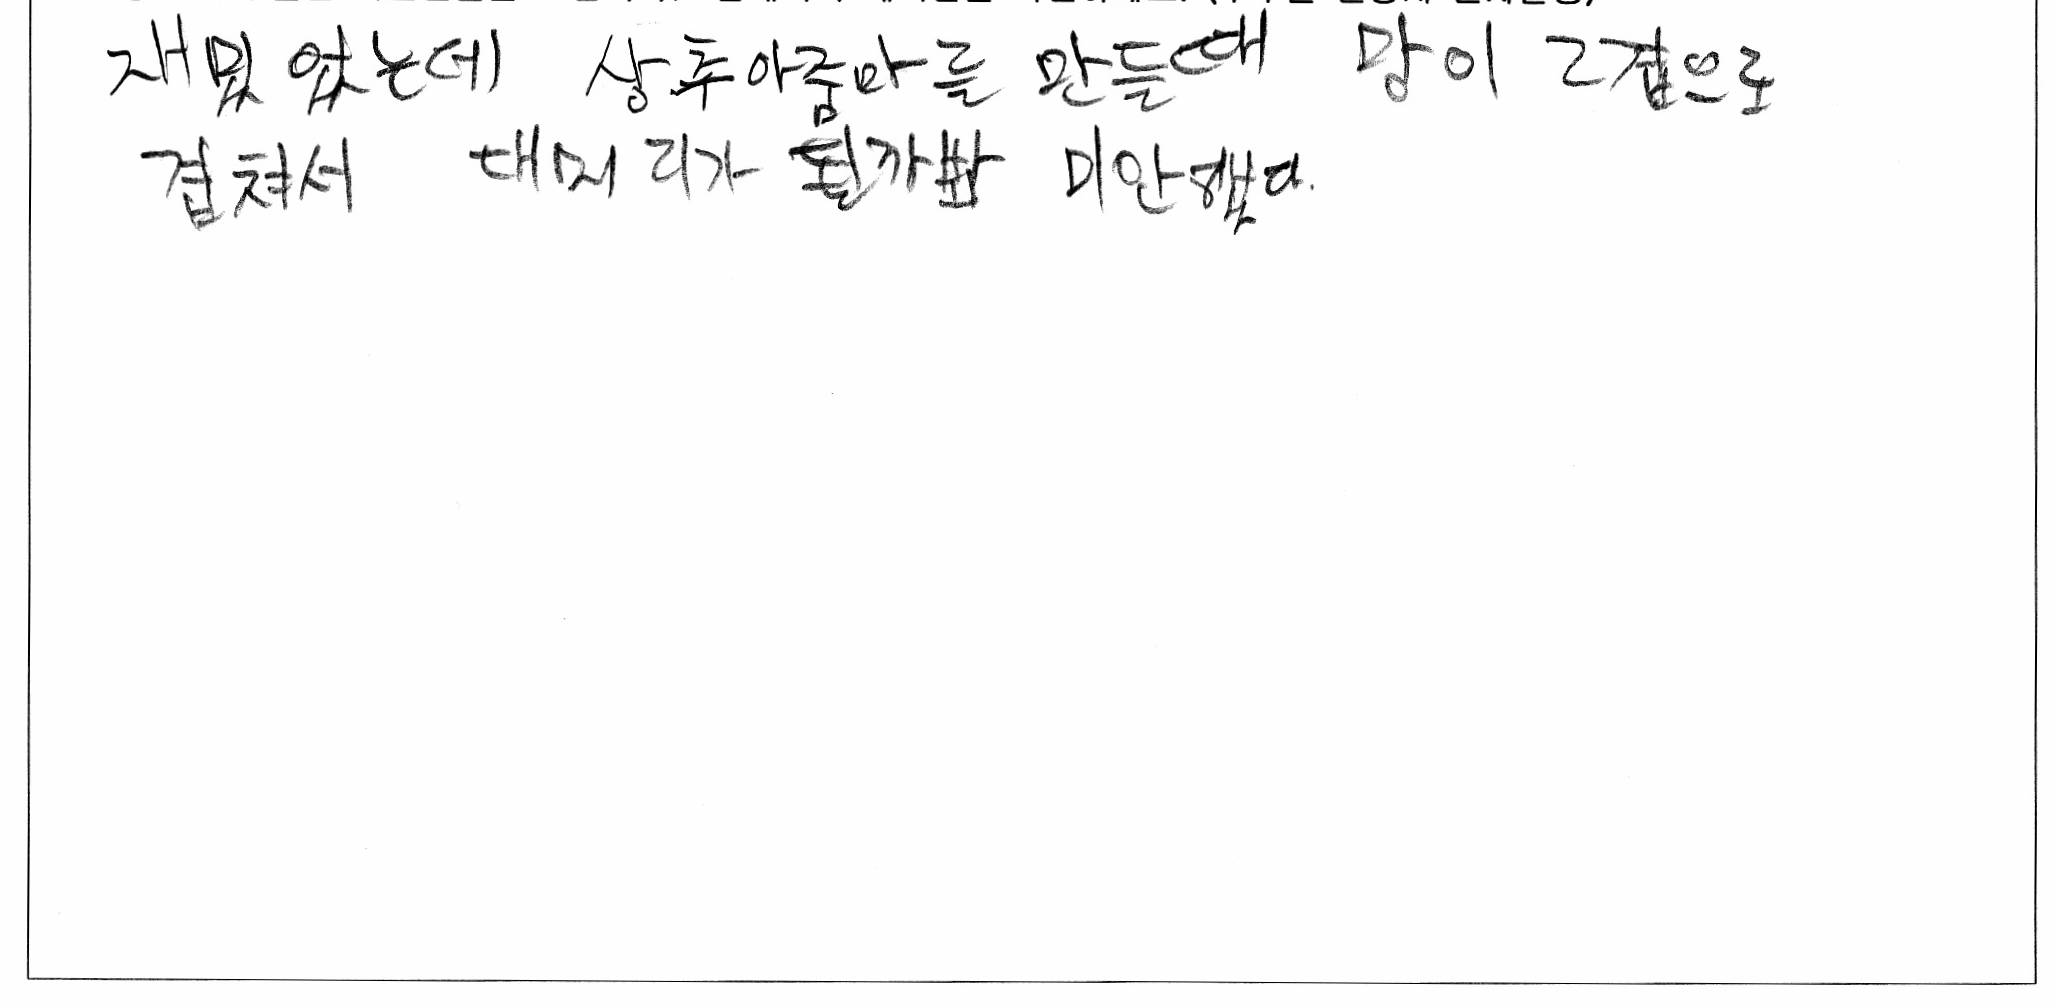 재밌었는데 상추아줌마를 만들때 망이 2겹으로
겹쳐서 대머리가 될까봐 미안했다.